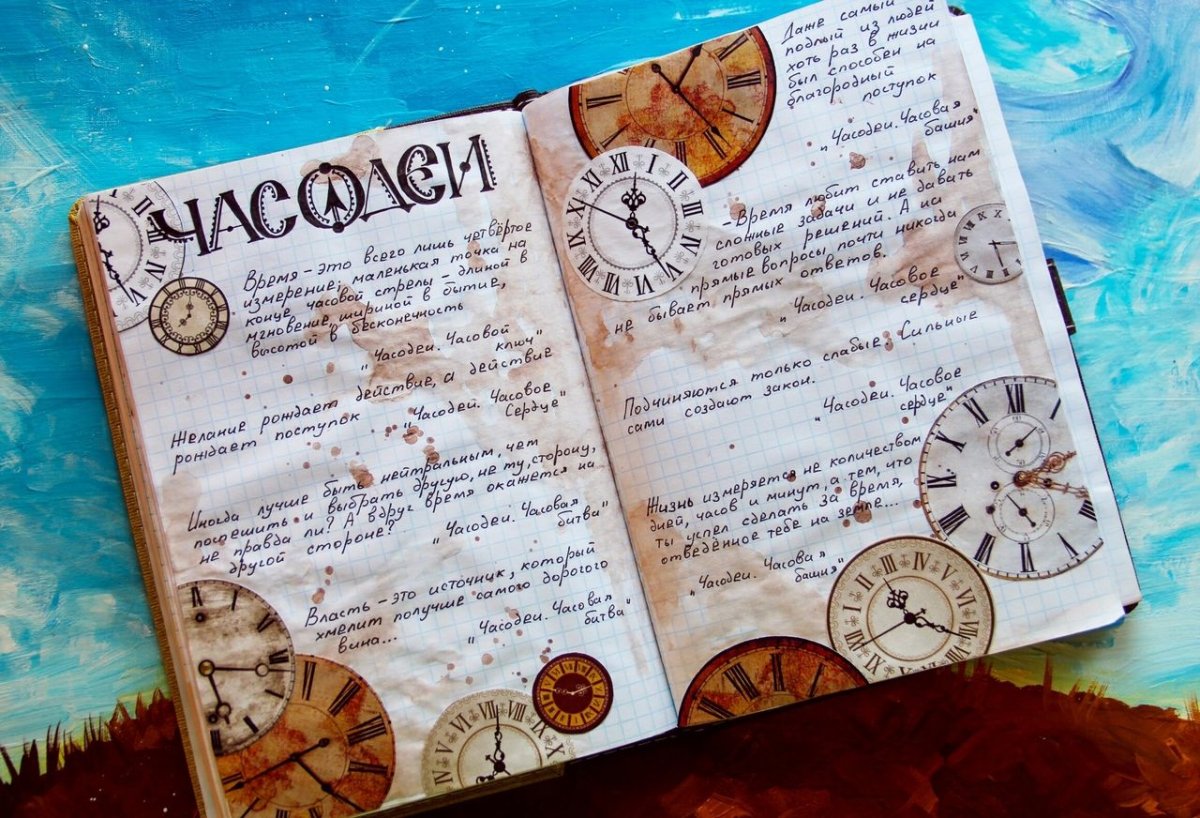 ЧАСОДЕИ
Время – это всего лишь четвёртое
измерение; маленькая точка на
конце часовой стрелы – длиной в
мгновение, шириной в бытие,
высотой в бесконечность
„Часодеи. Часовой
ключ"
Желание рождает действие, а действие
рождает поступок „Часодеи. Часовое
Сердце"
Иногда лучше быть нейтральным, чем
поспешить и выбрать другую, не ту, сторону,
не правда ли? А вдруг время окажется на
другой стороне?
„Часодеи. Часовая
битва"
Власть – это источник, который
хмелит получше самого дорогого
вина...
„Часодеи. Часовая
битва"
Даже самый
подлый из людей
хоть раз в жизни
был способен на
благородный
поступок
„Часодеи. Часовая
башня"
– Время любит ставить нам
сложные задачи и не давать
готовых решений. А на
прямые вопросы почти никогда
не бывает прямых ответов.
„Часодеи. Часовое
сердце"
Подчиняются только слабые. Сильные
сами создают закон.
„Часодеи. Часовое
сердце"
Жизнь измеряется не количеством
дней, часов и минут, а тем, что
ты успел сделать за время,
отведённое тебе на земле...
„Часодеи. Часовая
башня"